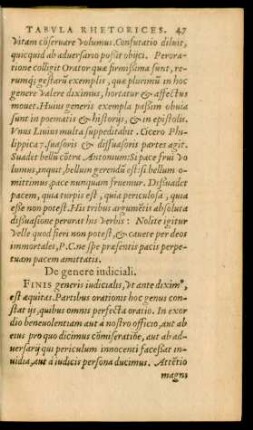 TABVLA RHETORICES. 47
vitam cōseruare volumus. Confutatio diluit,
quicquid ab aduersario possit obijci. Perora-
tione colligit Orator quæ firmissima sunt, re-
rumq; gestarū exemplis, quæ plurimū in hoc
genere valere diximus, hortatur & affectus
mouet. Huius generis exempla passim obuia
sunt in poematis & historijs, & in epistolis.
Vnus Liuius multa suppeditabit. Cicero Phi-
lippica 7. suasoris & dissuasoris partes agit.
Suadet bellū cōtra Antonium: Si pace frui vo
lumus, inquit, bellum gerendū est: si bellum o-
mittimus, pace nunquam fruemur. Dissuadet
pacem, quia turpis est, quia periculosa, quia
esse non potest. His tribus argumētis absoluta
dissuasione perorat his verbis: Nolite igitur
velle quod fieri non potest, & cauete per deos
immortales, P.C. ne spe præsentis pacis perpe-
tuam pacem amittatis.
De genere iudiciali.
FINIS generis iudicialis, vt ante diximꝰ,
est æquitas. Partibus orationis hoc genus con-
stat ijs, quibus omnis perfecta oratio. In exor
dio beneuolentiam aut à nostro officio, aut ab
eius pro quo dicimus cōmiseratione, aut ab ad-
uersarij qui periculum innocenti facessat in-
uidia, aut a iudicis persona ducimus. Attētio
magna